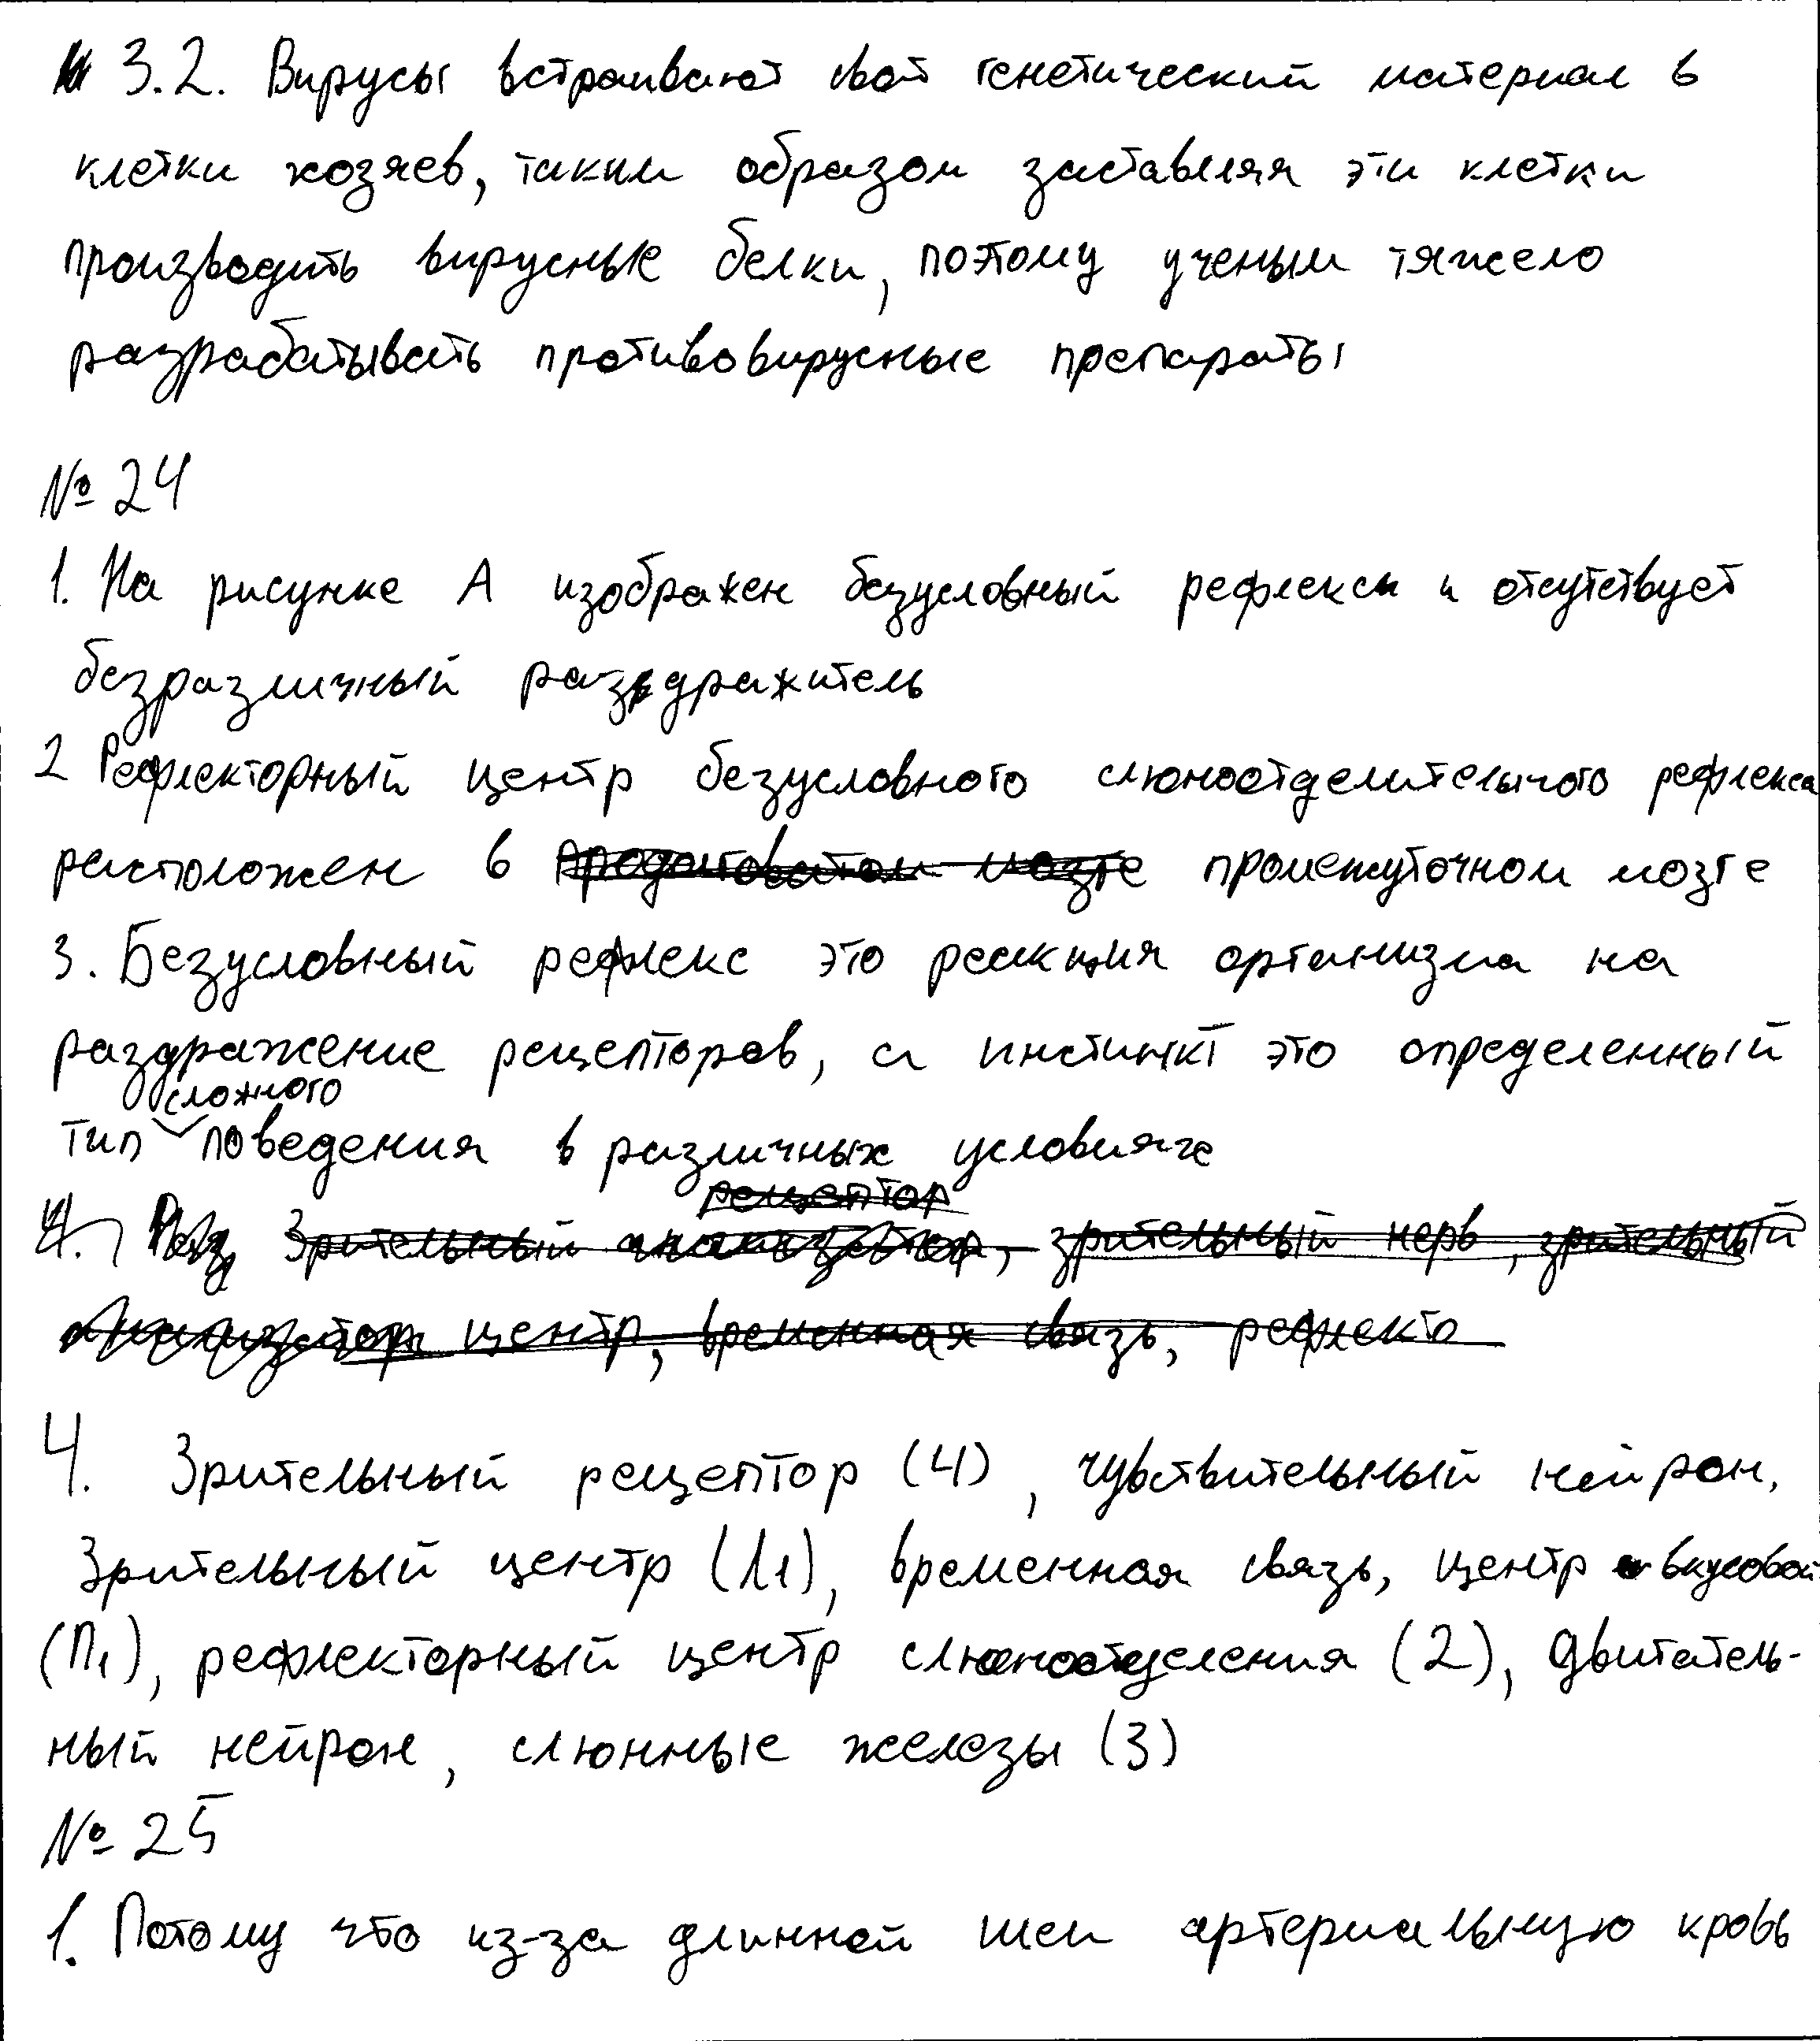 3.2. Вирусы встраивают свой генетический материал в
клетки хозяев, таким образом заставляя эти клетки
производить вирусные белки, поэтому ученым тяжело
разрабатывать противовирусные препараты
№ 24
1. На рисунке А изображен безусловный рефлекс и отсутствует
безразличный раздражитель
2 Рефлекторный центр безусловного слюноотделительного рефлекса
расположен в продолговатом мозге промежуточном мозге
3. Безусловный рефлекс это реакция организма на
раздражение рецепторов, а инстинкт это определенный
сложного
тип поведения в различных условиях
рецептор
4. Зрительный анализатор, зрительный нерв, зрительный
анализатор центр, временная связь, рефлекто
4. Зрительный рецептор (4), чувствительный нейрон,
Зрительный центр (Л1), временная связь, центр вкусовой
(П1), рефлекторный центр слюноотделения (2), двигатель-
ный нейрон, слюнные железы (3)
№ 25
1. Потому что из-за длинной шеи артериальную кровь